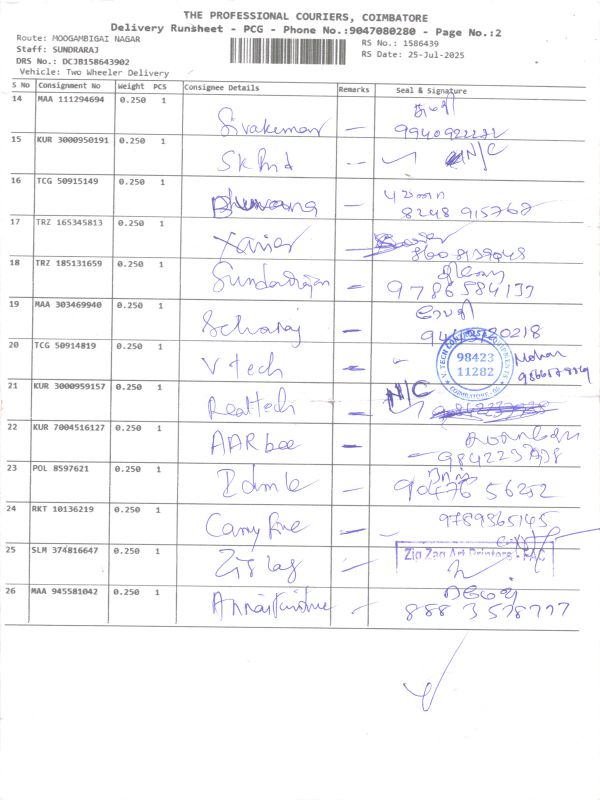 THE PROFESSIONAL COURIERS, COIMBATORE
Delivery Runsheet - PCG - Phone No.:9047080280 - Page No.:2
Route: MOOGAMBIGAI NAGAR
RS No.: 1586439
Staff: SUNDRARAJ
RS Date: 25-Jul-2025
DRS No.: DCJB158643902
Vehicle: Two Wheeler Delivery
S No Consignment No Weight PCS Consignee Details Remarks Seal & Signature
14 MAA 111294694 0.250 1 Sivakumar —
15 KUR 3000950191 0.250 1 — N/C
16 TCG 50915149 0.250 1 Bhuvana —
8248 915768
17 TRZ 165345813 0.250 1 Xavier —
18 TRZ 185131659 0.250 1 Sundarrajan —
19 MAA 303469940 0.250 1 Selvaraj —
20 TCG 50914819 0.250 1 V tech —
V TECH CONTROLS & EQUIPMENTS
98423
11282
Mohan
21 KUR 3000959157 0.250 1 Realtech — N/C
22 KUR 7004516127 0.250 1 AAR bee —
23 POL 8597621 0.250 1 —
90476 56252
24 RKT 10136219 0.250 1 —
9789365145
25 SLM 374816647 0.250 1 Zig Zag —
Zig Zag Art Printers - FAC
26 MAA 945581042 0.250 1 —
888 3578777